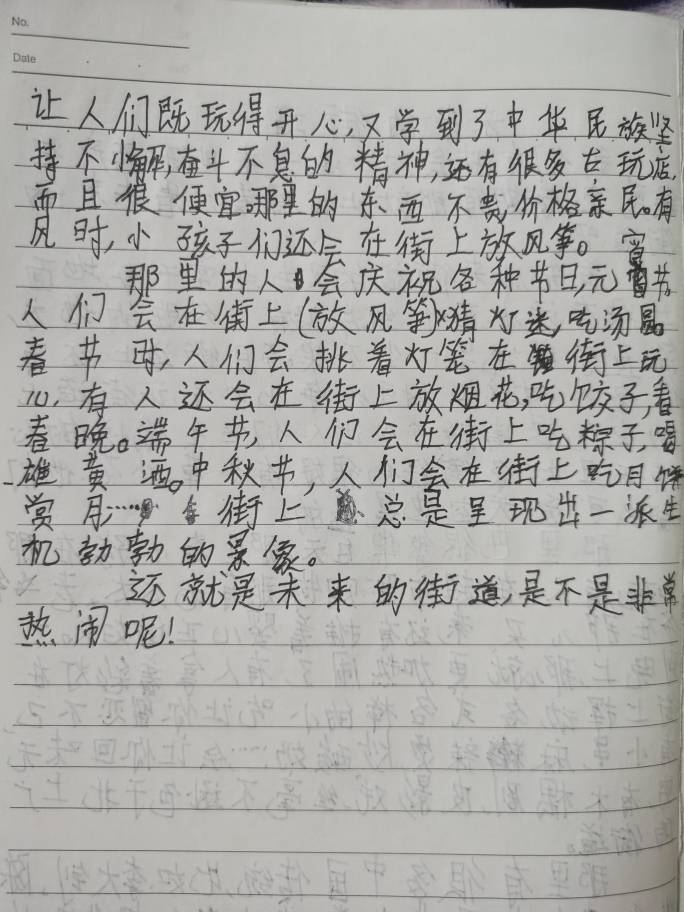 No.
Date
让人们既玩得开心,又学到了中华民族坚
持不懈,奋斗不息的精神,还有很多古玩店,
而且很便宜。那里的东西不贵,价格亲民。有
风时,小孩子们还会在街上放风筝。
那里的人会庆祝各种节日,元宵节,
人们会在街上(放风筝)猜灯迷,吃汤圆。
春节时,人们会挑着灯笼在街上玩
心,有人还会在街上放烟花,吃饺子,看
春晚。端午节,人们会在街上吃粽子,喝
雄黄酒。中秋节,人们会在街上吃月饼
赏月……街上总是呈现出一派生
机勃勃的景象。
还就是未来的街道,是不是非常
热闹呢!